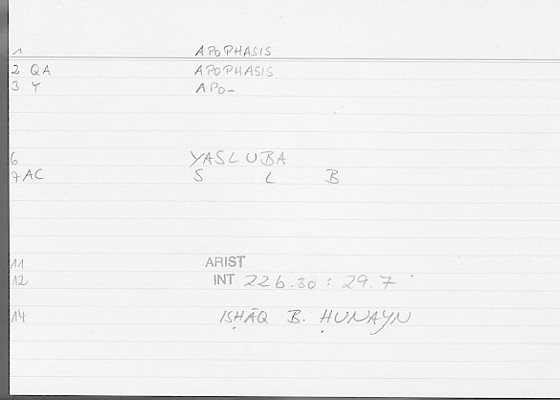 1 APOPHASIS
2 QA APOPHASIS
3 Y APO-
6 YASLUBA
7 AC S L B
11 ARIST
12 INT 22b.30 : 29.7
14 ISḤĀQ B. ḤUNAYN